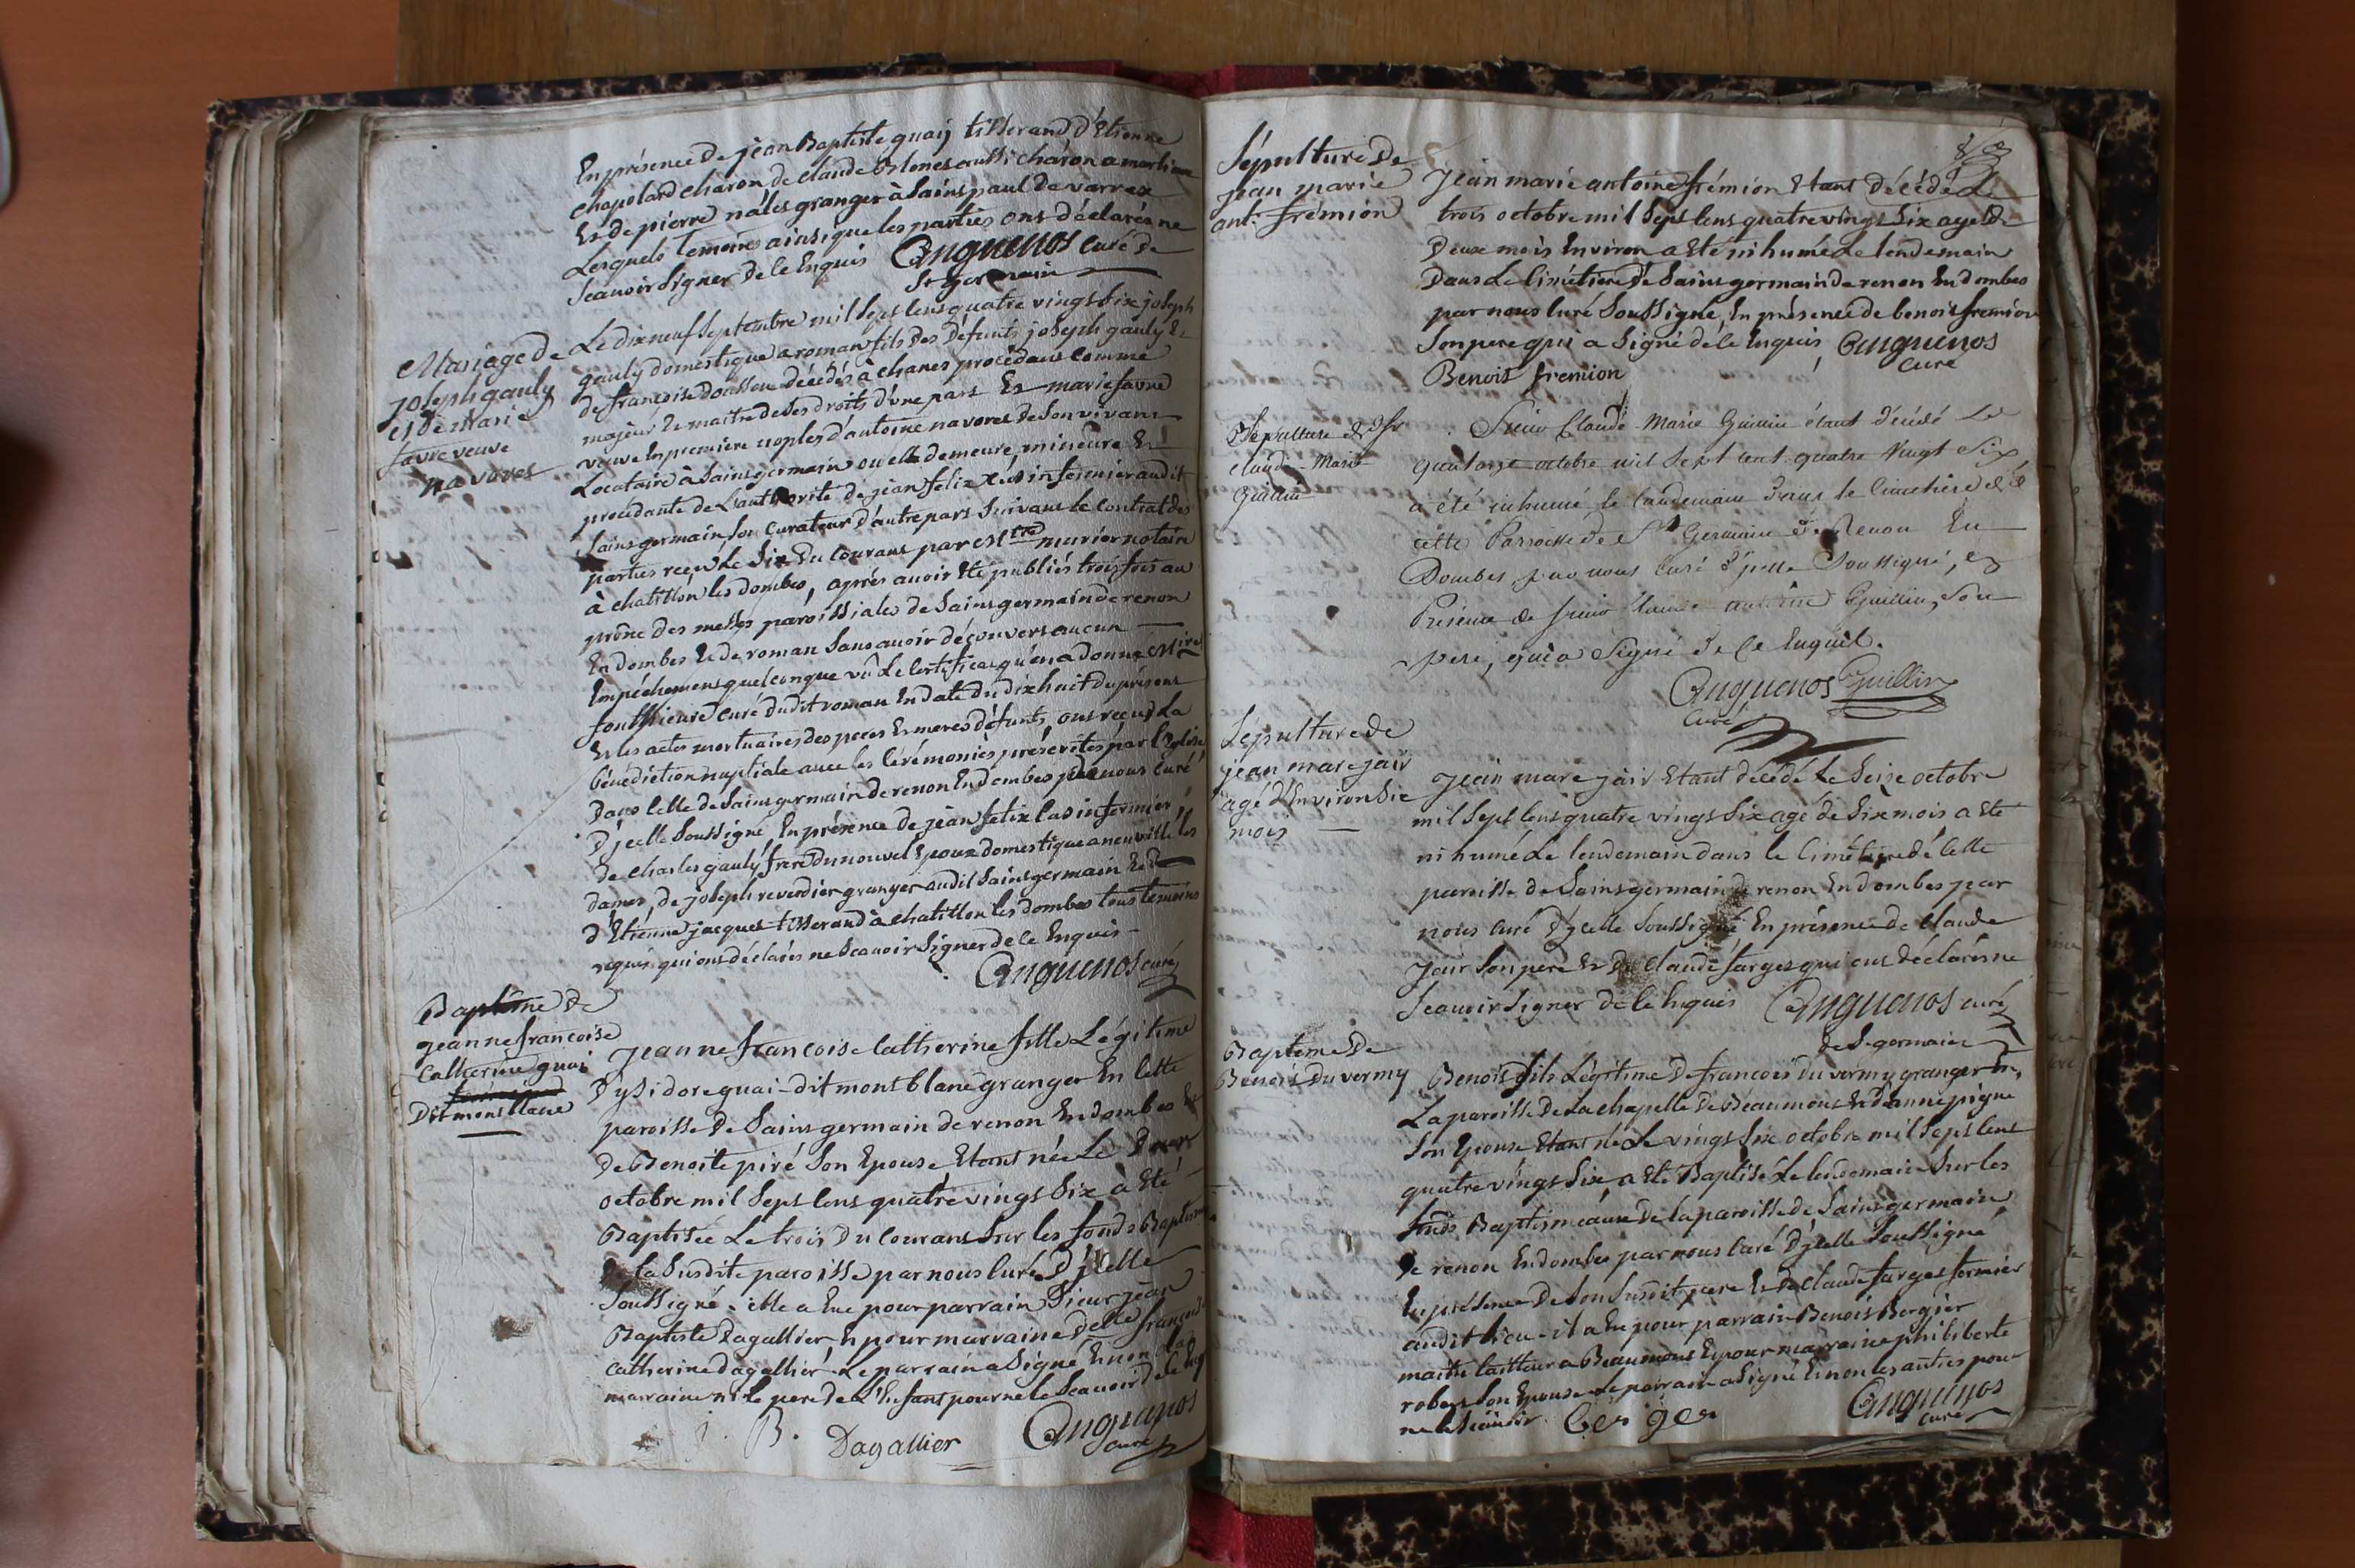 En présence de jean Baptiste guaij tisserand d'Etienne
chapolard charon de claude Blones aussi charon a
Et de pierre nâles granger à Sains paul de varrax
Lesquels temoins ainsi que les parties ons déclarés ne
Scauoir Signer de le Enquis Anguenos curé de
St germain
Mariage de
joseph gauly
et de Marie
favre veuve
navores
Le dixneuf Septembre mil Seps Cens quatre vings Six joseph
gauly domestique a roman fils des Défunts joseph gauly Et
de francoise doussou décédés à chanes procédans comme
majeur Et maitre de Ses droits d'vne pars Et marie favre
veuve En premiere noples d'antoine navores de Son vivans
Locataire à Sains germain ou elle demeure, mineure Et
procédante de L'authorité de jean felix Casin fermier audit
Sains germain Son Curateur d'autre pars Suivans le Contrat des
parties reçu Le Six du Courans par Mtre murier notaire
à chatillon les dombes, aprés auoir Eté publiés trois fois au
prône des messes paroissiales de Sains germain de renon
En dombes Et de roman Sans auoir découvers aucun
Empéchemens quelconque vû Le Certificas qu'en a donné Msire
curé dudit roman En date du dixhuit du présens
Et les actes mortuaires des peres Et meres défunts, ons reçus La
bénédiction nuptiale auec les Cérémonies préscrites par l'Eglise
dans Celle de Sains germain de renon En dombes par nous Curé
D'jcelle Soussigné, En présence de jean felix Casin fermier,
de Charles gauly frere du nouvel Epoux domestique a neuville les
dames, de joseph reverdier granger audit Sains germain Et
d'Etienne jacques tisserand à chatillon les dombes tous temoins
réquis qui ons déclarés ne Scauoir Signer de le Enquis
Anguenos curé
Baptême de
jeanne francoise
Catherine guai
Dit monsblanc
jeanne francoise Catherine fille Légitime
D'ysidore guai dit mont blanc granger En Cette
paroisse de Sains germain de renon En dombes Et
de Benoite piré Son Epouse Etant née Le Deux
octobre mil Seps Cens quatre vings Six à Eté
Baptisée Le trois Du Courans Sur les fonds
de la Susdite paroisse par nous Curé D'jcelle
Soussigné. elle a Eue pour parrain Sieur jean
Baptiste Dagallier Et pour marraine delle francoise
catherine dagallier. Le parrain a Signé Et non la
marraine ni le pere de L'Enfant pour ne le Scauoir de le Enq
J. B. Dagallier Anguenos
curé
Sépulture de
jean marie
ant. frémion
Jean marie antoine frémion Etant décédé Le
trois octobre mil Seps Cens quatre vings Six agé de
Deux mois Environ a Eté inhumé Le lendemain
Dans Le Cimétiere de Sains germain de renon En dombes
par nous Curé Soussigné, En présence de benois fremion
Son pere qui a Signé de le Enquis Anguenos
Curé
Benoit fremion
Sépulture de Sr
Claude Marie
Guillin
Sieur Claude Marie Guillin étant décédé Le
quatorze octobre mil Sept Cent quatre Vingt Six
a été inhumé le Landemain dans le Cimetiere de
cette Parroisse de St Germain de Renon En
Dombes, par nous Curé d'jcelle Soussigné, En
Présence de Sieur Claude antoine Guillin, Son
pere, qui a Signé de le Enquis.
Anguenos Guillin
Curé
Sépulture de
jean marc jair
agé d'Environ Six
mois
Jean marc jair Etant décédé Le Seize octobre
mil Sept Cens quatre vings Six agé de Six mois a Eté
inhumé Le lendemain dans le Cimétiere de Cette
paroisse de Sains germain de renon En dombes par
nous Curé D'jcelle Soussigné En présence de Claude
jair Son pere Et de Claude farges qui ons déclarés ne
Scauoir Signer de le Enquis Anguenos curé
de St germain
Baptême de
Benois Du vermy
Benois fils Légitime De francois du vermy granger En
La paroisse de La chapelle de Beaumons Et d'anne pigne
Son Epouse Etant né Le vings Six octobre mil Seps Cens
quatre vings Six a Eté Baptisé Le lendemain Sur les
fonds Baptismeaux de la paroisse de Sains germain
de renon En dombes par nous Curé D'jcelle Soussigné
En présence de Son Susdit pere Et de Claude farges fermier
audit lieu. il a Eu pour parrain Benois Bergier
maitre tailleur a Beaumons Et pour marraine philiberte
robers Son Epouse Le parrain a Signé Et non les autres pour
ne le Scauoir. Berger Anguenos
curé